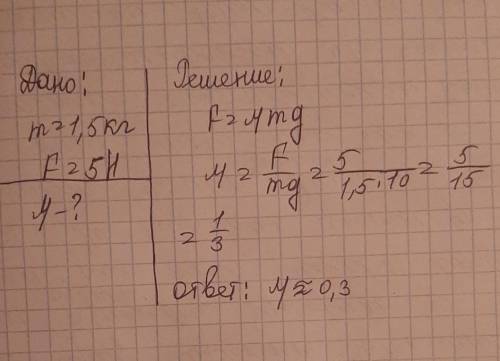 Дано:
m = 1,5 кг
F = 5Н
μ - ?
Решение:
F = μmg
μ = F/mg = 5/1,5·10 = 5/15
= 1/3
ответ: μ ≈ 0,3